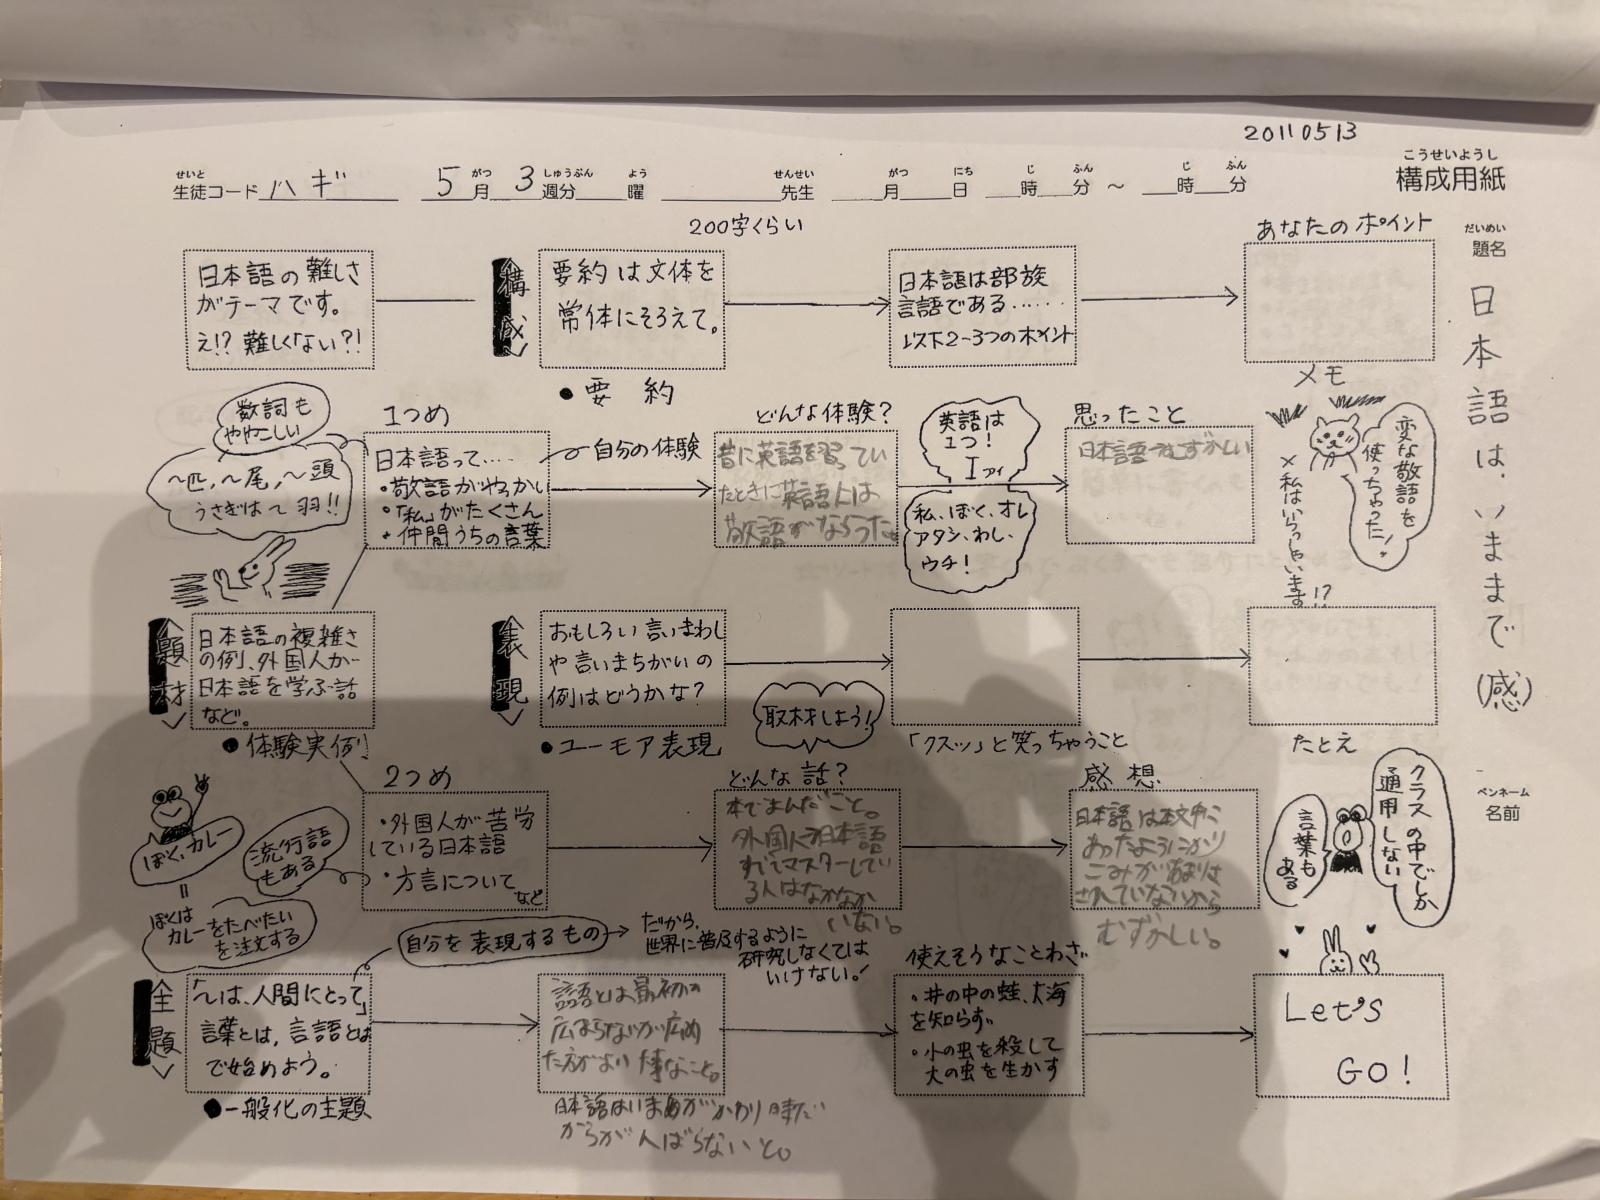 20110513
こうせいようし
構成用紙
せいと がつ しゅうぶん よう せんせい がつ にち じ ふん じ ふん
生徒コード ハギ 5月3週分 曜 先生 月 日 時 分 ～ 時 分
だいめい
題名
日本語は、いままで(感)
ペンネーム
名前
200字くらい
あなたのポイント
日本語の難しさ
がテーマです。
え!? 難しくない?!
構成
要約は文体を
常体にそろえて。
日本語は部族
言語である……
以下2～3つのポイント
●要約
メモ
数詞も
ややこしい
～匹、～尾、～頭
うさぎは～羽!!
1つめ
日本語って‥‥
・敬語がやっかい
・「私」がたくさん
・仲間うちの言葉
自分の体験
どんな体験？
昔に英語を習ってい
たときに英語人は
敬語が
英語は
1つ！
I アイ
私、ぼく、オレ
アタシ、わし、
ウチ！
思ったこと
日本語ってむずかしい
変な敬語を
使っちゃった！
×私はいらっしゃいます!?
題材
日本語の複雑さ
の例、外国人が
日本語を学ぶ話
など。
●体験実例
表現
おもしろい言いまわし
や言いまちがいの
例はどうかな？
●ユーモア表現
取材しよう！
「クスッ」と笑っちゃうこと
たとえ
ぼく、カレー
＝
ぼくは
カレーをたべたい
を注文する
流行語
もある
2つめ
・外国人が苦労
している日本語
・方言について
など
どんな話？
本でよんだこと。
外国人で日本語
すべてマスターしてい
る人はなかなか
いない。
感想
日本語は本文中に
あったように
むずかしい。
クラスの中でしか
通用しない
言葉も
ある
自分を表現するもの
だから、
世界に普及するように
研究しなくては
いけない！
全題
「～は、人間にとって」
言葉とは、言語とは
で始めよう。
●一般化の主題
言語とは最初から
広まらないが広め
た方がよい大事なこと。
日本語はいま
使えそうなことわざ
・井の中の蛙、大海
を知らず
・小の虫を殺して
大の虫を生かす
Let's
GO!